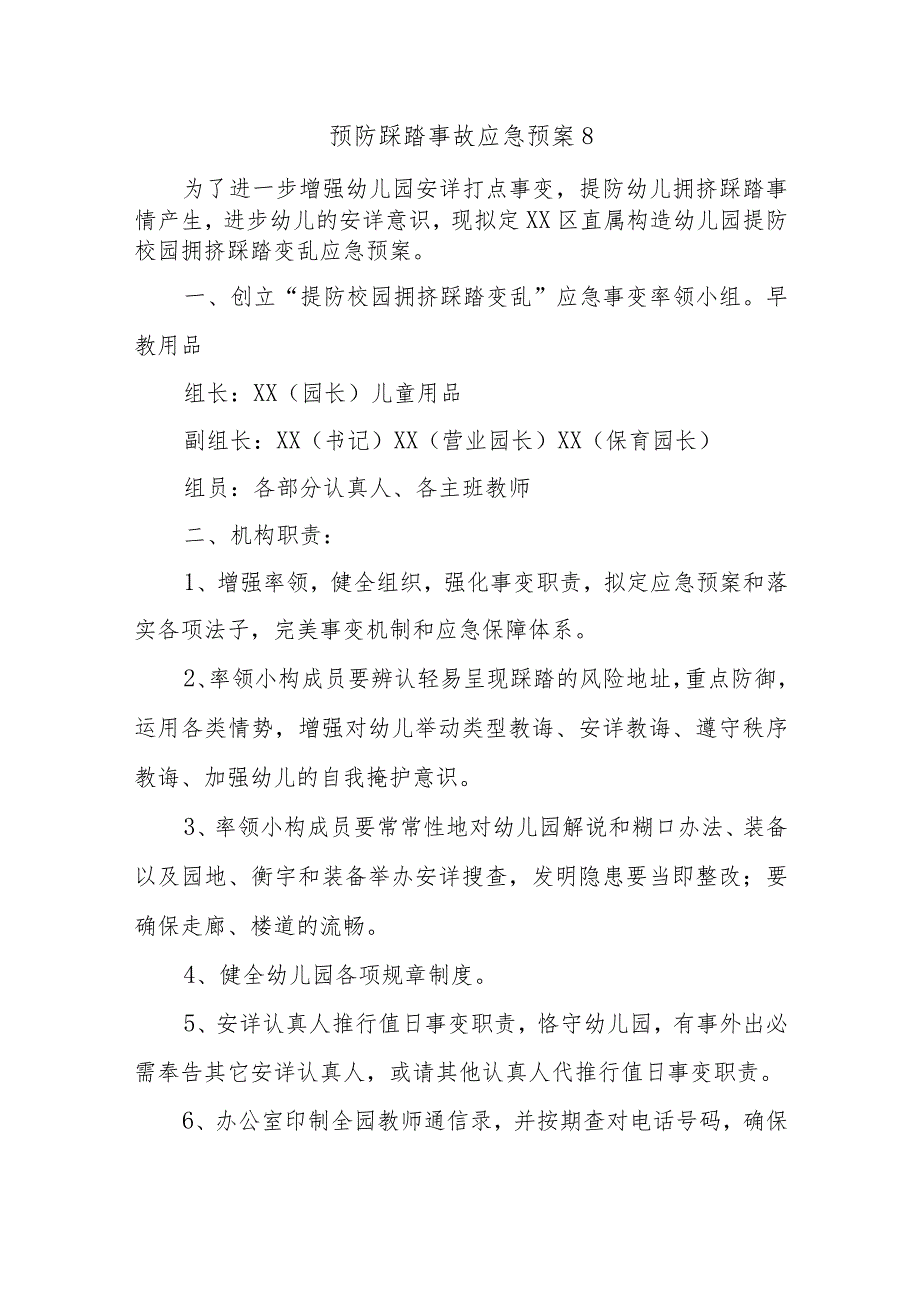 预防踩踏事故应急预案8
为了进一步增强幼儿园安详打点事变，提防幼儿拥挤踩踏事
情产生，进步幼儿的安详意识，现拟定XX区直属构造幼儿园提防
校园拥挤踩踏变乱应急预案。
一、创立“提防校园拥挤踩踏变乱”应急事变率领小组。早
教用品
组长：XX（园长）儿童用品
副组长：XX（书记）XX（营业园长）XX（保育园长）
组员：各部分认真人、各主班教师
二、机构职责：
1、增强率领，健全组织，强化事变职责，拟定应急预案和落
实各项法子，完美事变机制和应急保障体系。
2、率领小构成员要辨认轻易呈现踩踏的风险地址，重点防御，
运用各类情势，增强对幼儿举动类型教诲、安详教诲、遵守秩序
教诲、加强幼儿的自我掩护意识。
3、率领小构成员要常常性地对幼儿园解说和糊口办法、装备
以及园地、衡宇和装备举办安详搜查，发明隐患要当即整改；要
确保走廊、楼道的流畅。
4、健全幼儿园各项规章制度。
5、安详认真人推行值日事变职责，恪守幼儿园，有事外出必
需奉告其它安详认真人，或请其他认真人代推行值日事变职责。
6、办公室印制全园教师通信录，并按期查对电话号码，确保